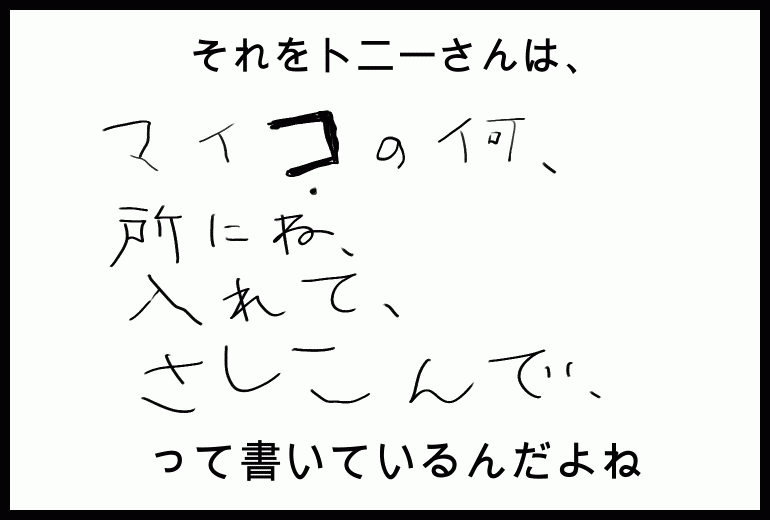 それをトニーさんは、
マイコの何、
所にね、
入れて、
さしこんで、
って書いているんだよね